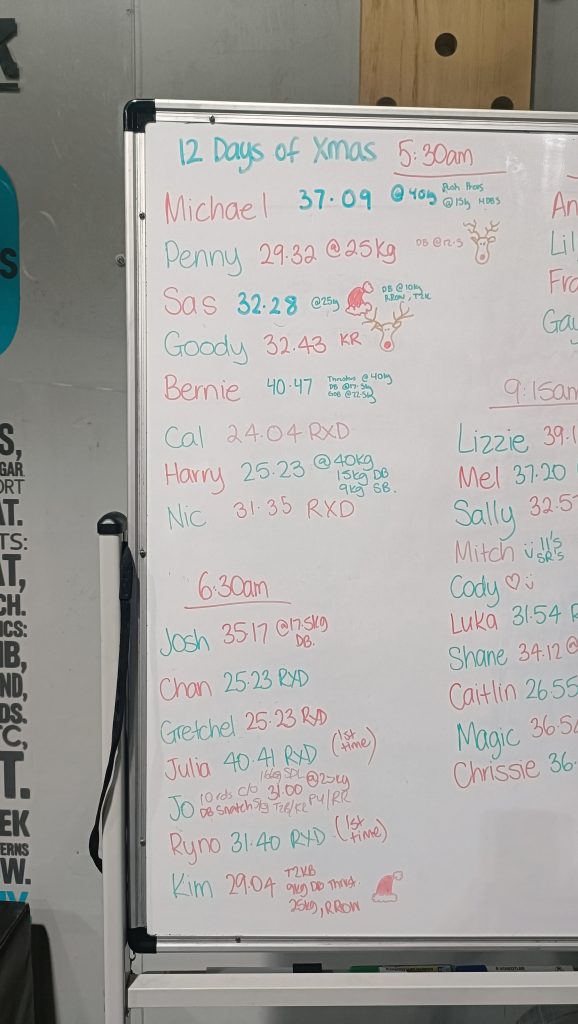 12 Days of Xmas 5:30am
Michael 37.09 @40kg Push Press
@15kg HDBS
Penny 29.32 @25kg DB @12.5
Sas 32.28 @25kg DB @10kg
RROW, T2K
Goody 32.43 KR
Bernie 40.47 Thrusters @40kg
DB @17.5kg
GOB @22.5kg
Cal 24.04 RXD
Harry 25.23 @40kg
15kg DB
9kg SB.
Nic 31.35 RXD
6:30am
Josh 35.17 @17.5kg
DB.
Chan 25.23 RXD
Gretchel 25.23 RXD
Julia 40.41 RXD (1st
time)
16kg SDL
Jo 10rds c/o 31.00 @25kg
DB Snatch 5kg T2R/KR PU/RR
Ryno 31.40 RXD (1st
time)
Kim 29.04 T2KB
9kg DB Thrust.
25kg, RROW
An
Lil
Fra
Gay
9:15am
Lizzie 39.1
Mel 37.20
Sally 32.5
Mitch 11's
SR's
Cody
Luka 31.54 R
Shane 34.12 @
Caitlin 26.55
Magic 36.5
Chrissie 36.
K
S
S,
GAR
ORT
AT.
TS:
AT,
CH.
ICS:
MB,
ND,
DS.
TC,
T.
EEK
TERNS
W.